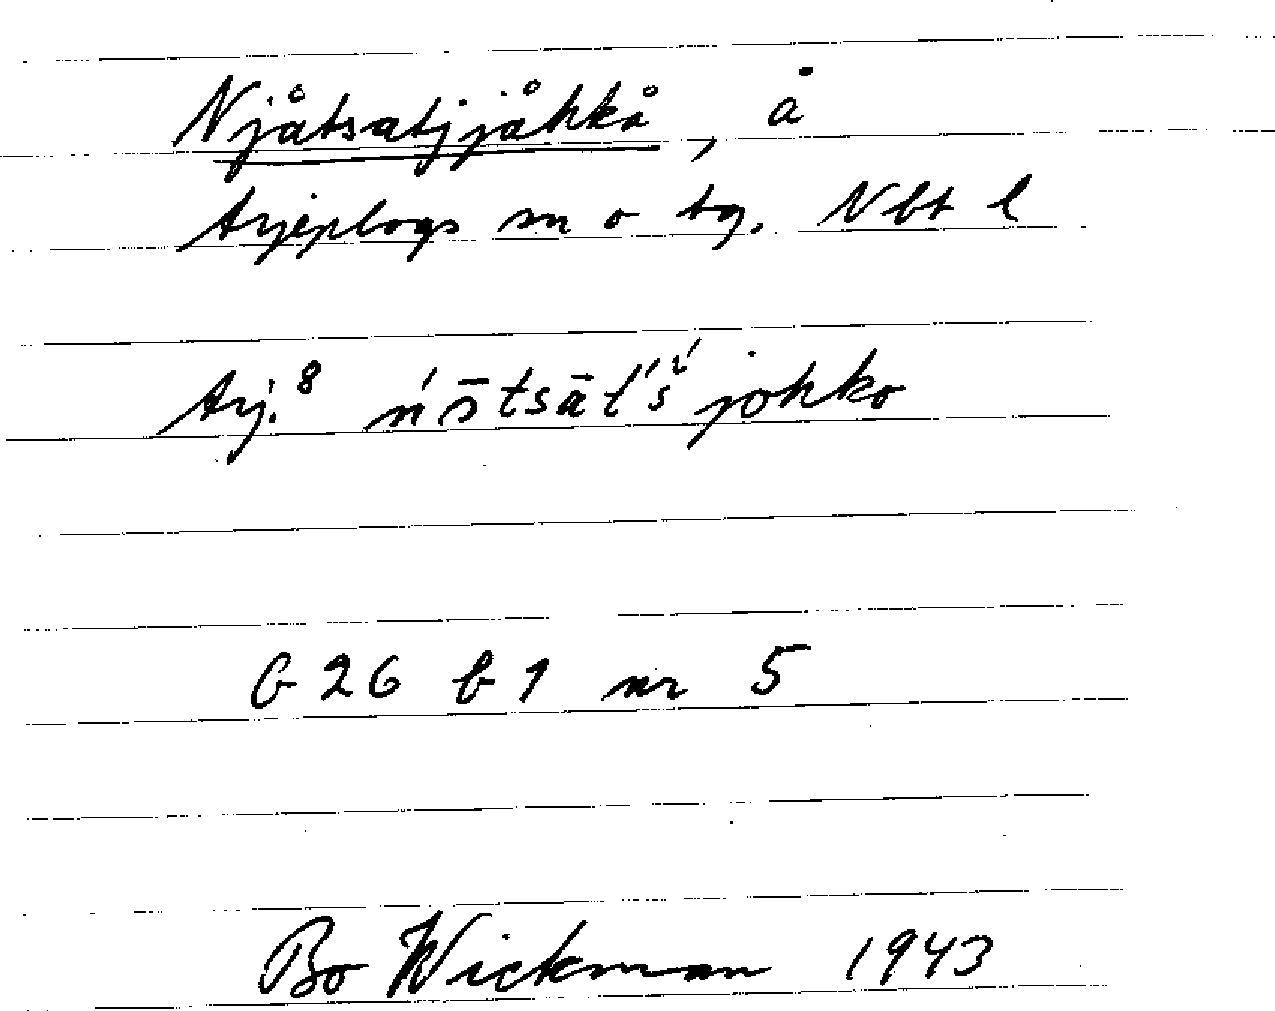 Njåtsatjjåkkå, å
Arjeplogs sn o tg. Nbt l
Arj.⁸ ń ō̬tsāt́ś jokko
G 26 b 1 nr 5
Bo Wickman 1943